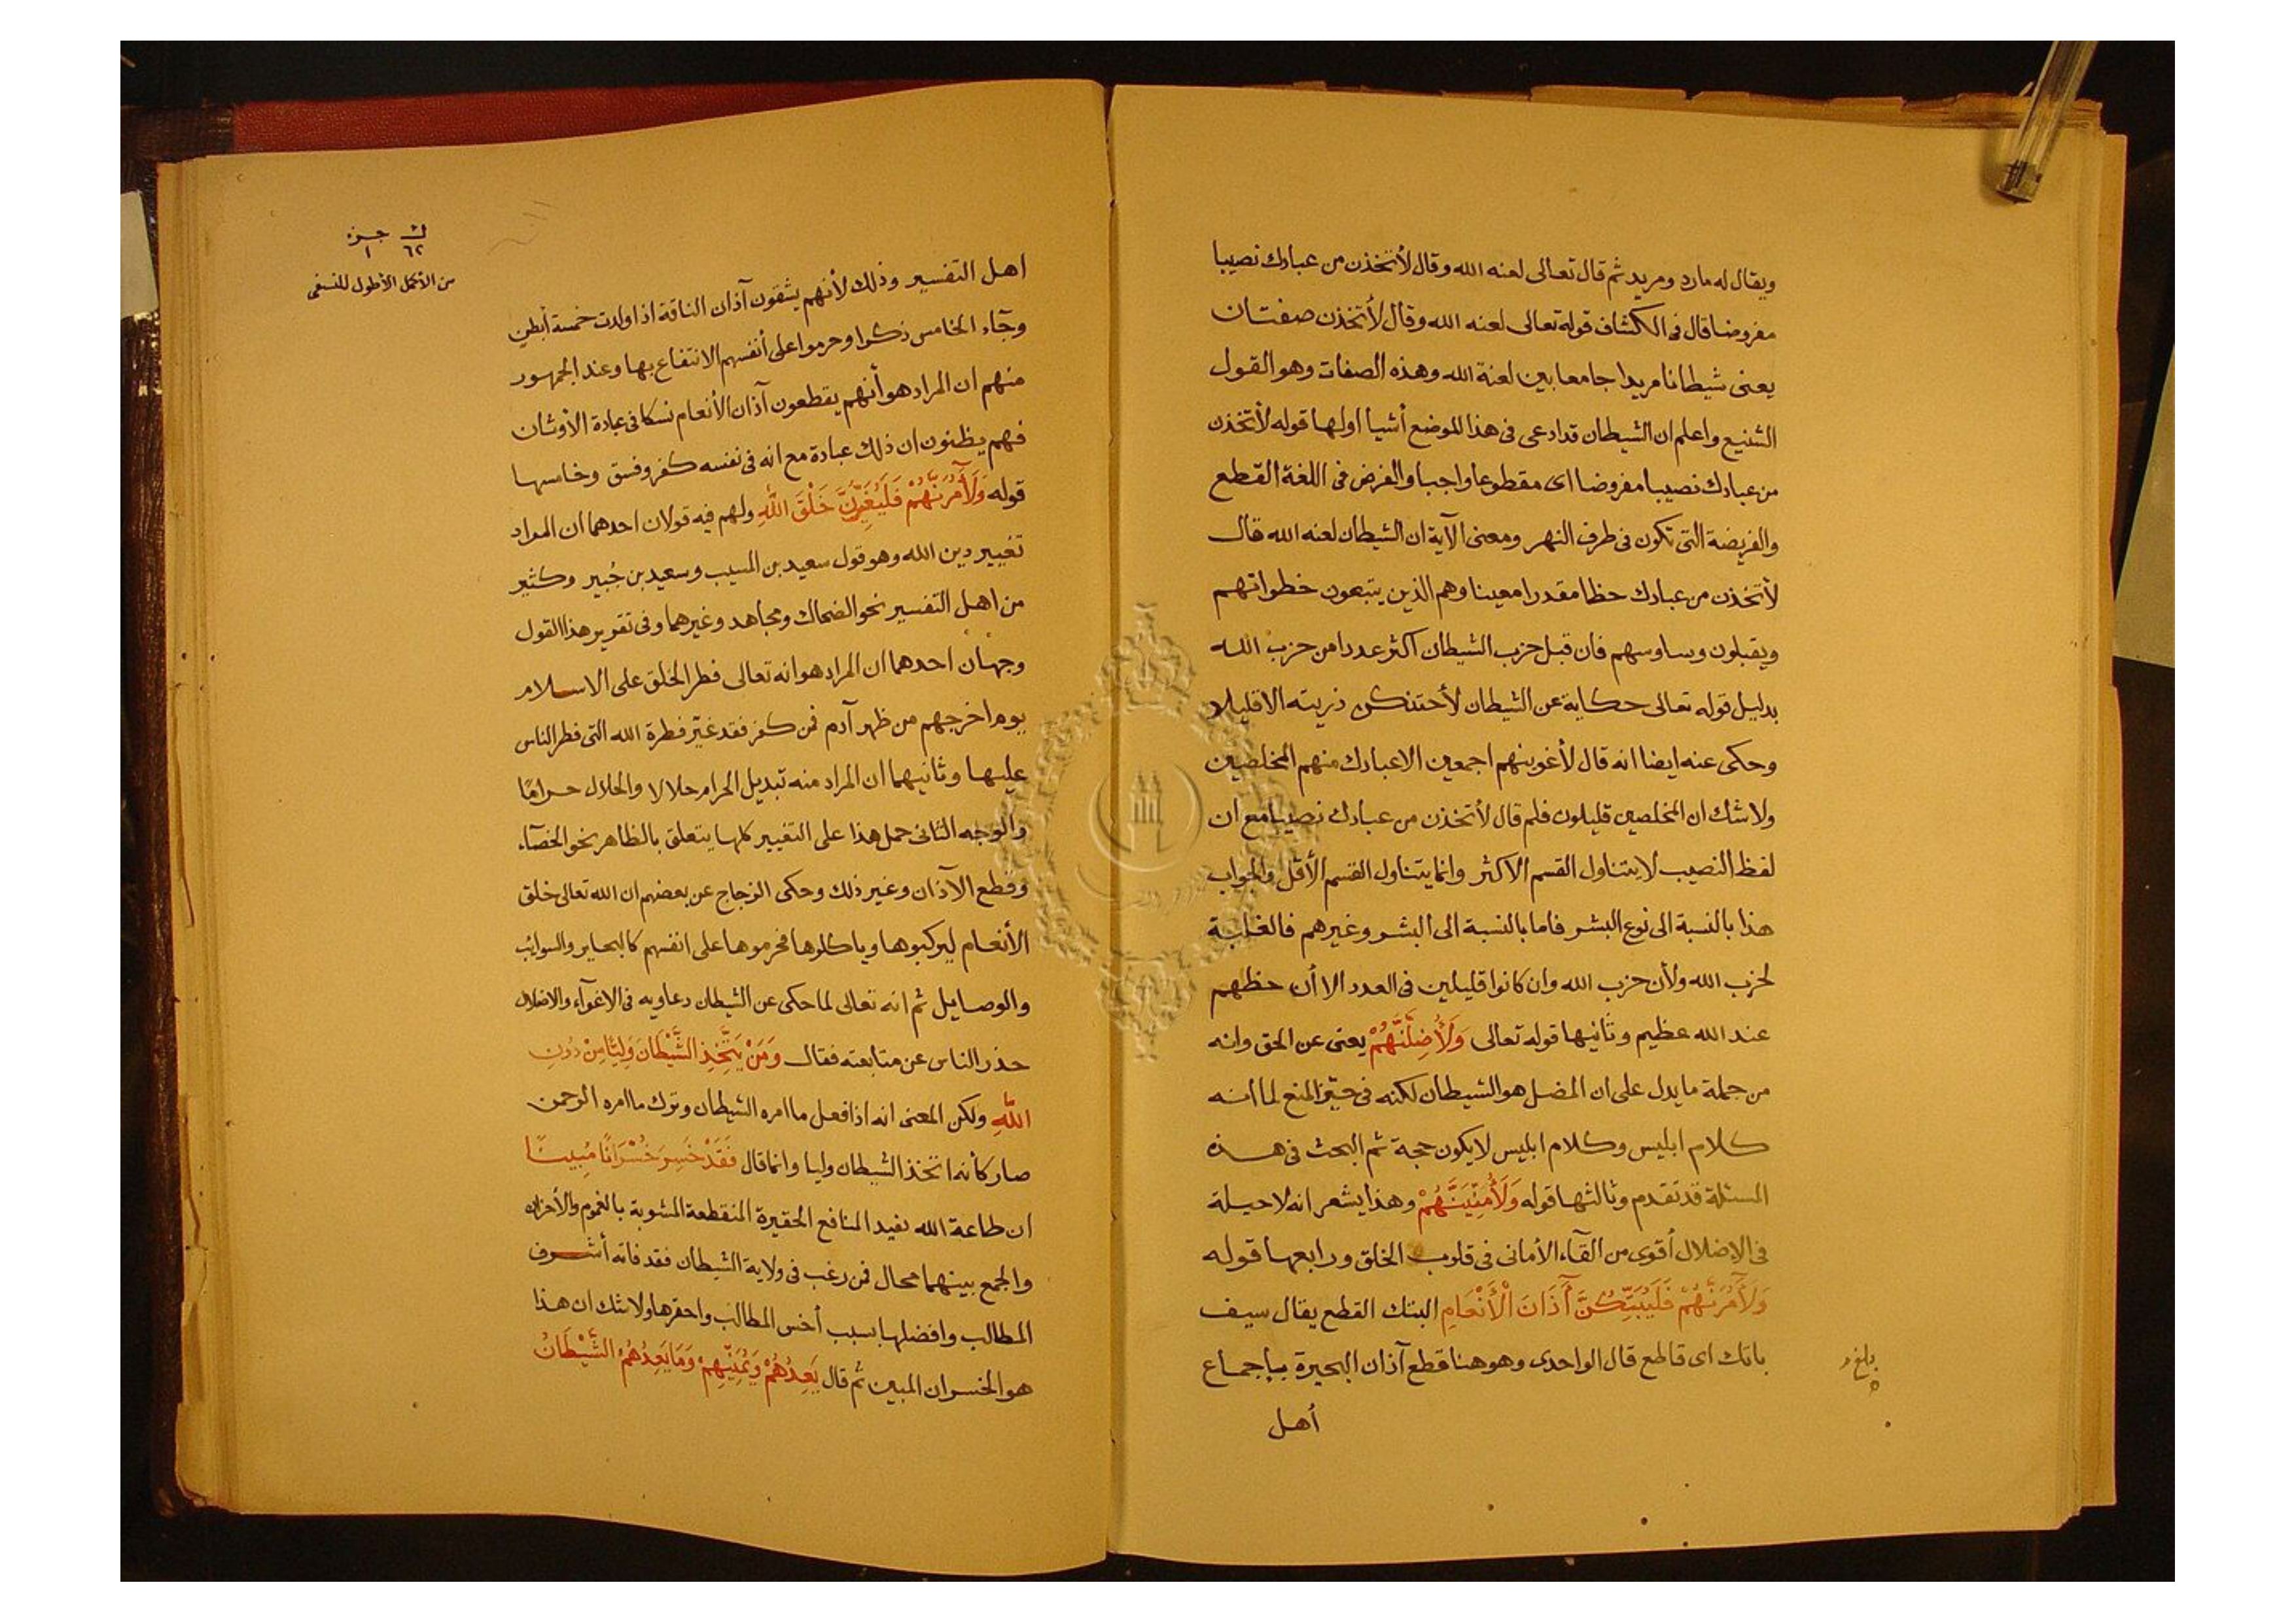 ويقال له مارد ومريد ثم قال تعالى لعنه الله وقال لأتخذن من عبادك نصيبا
مفروضا قال فى الكشاف قوله تعالى لعنه الله وقال لأتخذن صفتان
يعنى شيطانا مريدا جامعا بين لعنة الله وهذه الصفات وهو القول
الشنيع واعلم ان الشيطان قد ادعى فى هذا الموضع أشيا اولها قوله لأتخذن
من عبادك نصيبا مفروضا اى مقطوعا واجبا والفرض فى اللغة القطع
والفريضة التى تكون فى طرف النهر ومعنى الآية ان الشيطان لعنه الله قال
لأتخذن من عبادك حظا مقدرا معينا وهم الذين يتبعون خطواتهم
ويقبلون وساوسهم فان قبل حزب الشيطان اكثر عددا من حزب الله
بدليل قوله تعالى حكاية عن الشيطان لأحتنكن ذريته الا قليلا
وحكى عنه ايضا انه قال لأغوينهم اجمعين الا عبادك منهم المخلصين
ولا شك ان المخلصين قليلون فلم قال لأتخذن من عبادك نصيبا مع ان
لفظ النصيب لا يتناول القسم الاكثر وانما يتناول القسم الأقل والجواب
هذا بالنسبة الى نوع البشر فاما بالنسبة الى البشر وغيرهم فالغلبة
لحزب الله ولأن حزب الله وان كانوا قليلين فى العدد الا أن حظهم
عند الله عظيم وثانيها قوله تعالى وَلَأُضِلَّنَّهُمْ يعنى عن الحق وانه
من جملة ما يدل على ان المضل هو الشيطان لكنه فى حيّز المنع لما انه
كلام ابليس وكلام ابليس لا يكون حجة ثم البحث فى هذه
المسئلة قد تقدم وثالثها قوله وَلَأُمَنِّيَنَّهُمْ وهذا يشعر انه لا حيلة
فى الاضلال أقوى من القآء الأمانى فى قلوب الخلق ورابعها قوله
وَلَآَمُرَنَّهُمْ فَلَيُبَتِّكُنَّ آَذَانَ الْأَنْعَامِ البتك القطع يقال سيف
باتك اى قاطع قال الواحدى وهو ههنا قطع آذان البحيرة بإجماع
أهل
بلغ
ك جزء
٦٢ ١
من الأكمل الأطول للنسفى
اهل التفسير وذلك لأنهم يشقون آذان الناقة اذا ولدت خمسة أبطن
وجآء الخامس ذكرا وحرموا على أنفسهم الانتفاع بها وعند الجمهور
منهم ان المراد هو أنهم يقطعون آذان الأنعام نسكا فى عبادة الأوثان
فهم يظنون ان ذلك عبادة مع انه فى نفسه كفر وفسق وخامسها
قوله وَلَآَمُرَنَّهُمْ فَلَيُغَيِّرُنَّ خَلْقَ اللَّهِ ولهم فيه قولان احدهما ان المراد
تغيير دين الله وهو قول سعيد بن المسيب وسعيد بن جُبير وكثير
من اهل التفسير نحو الضحاك ومجاهد وغيرهما وفى تقرير هذا القول
وجهان احدهما ان المراد هو انه تعالى فطر الخلق على الاسلام
يوم اخرجهم من ظهر آدم فمن كفر فقد غيّر فطرة الله التى فطر الناس
عليها وثانيهما ان المراد منه تبديل الحرام حلالا والحلال حرامًا
والوجه الثانى حمل هذا على التغيير كلها يتعلق بالظاهر نحو الخصآء
وقطع الآذان وغير ذلك وحكى الزجاج عن بعضهم ان الله تعالى خلق
الأنعام ليركبوها وياكلوها فحرموها على انفسهم كالبحاير والسوائب
والوصايل ثم انه تعالى لما حكى عن الشيطان دعاويه فى الاغوآء والاضلال
حذر الناس عن متابعته فقال وَمَنْ يَتَّخِذِ الشَّيْطَانَ وَلِيًّا مِنْ دُونِ
اللَّهِ ولكن المعنى انه اذا فعل ما امره الشيطان وترك ما امره الرحمن
صار كأنه اتخذ الشيطان وليا وانما قال فَقَدْ خَسِرَ خُسْرَانًا مُبِينًا
ان طاعة الله تفيد المنافع الحقيرة المنقطعة المشوبة بالغموم والأحزان
والجمع بينهما محال فمن رغب فى ولاية الشيطان فقد فاته أشرف
المطالب وافضلها بسبب أخس المطالب واحقرها ولا شك ان هذا
هو الخسران المبين ثم قال يَعِدُهُمْ وَيُمَنِّيهِمْ وَمَا يَعِدُهُمُ الشَّيْطَانُ